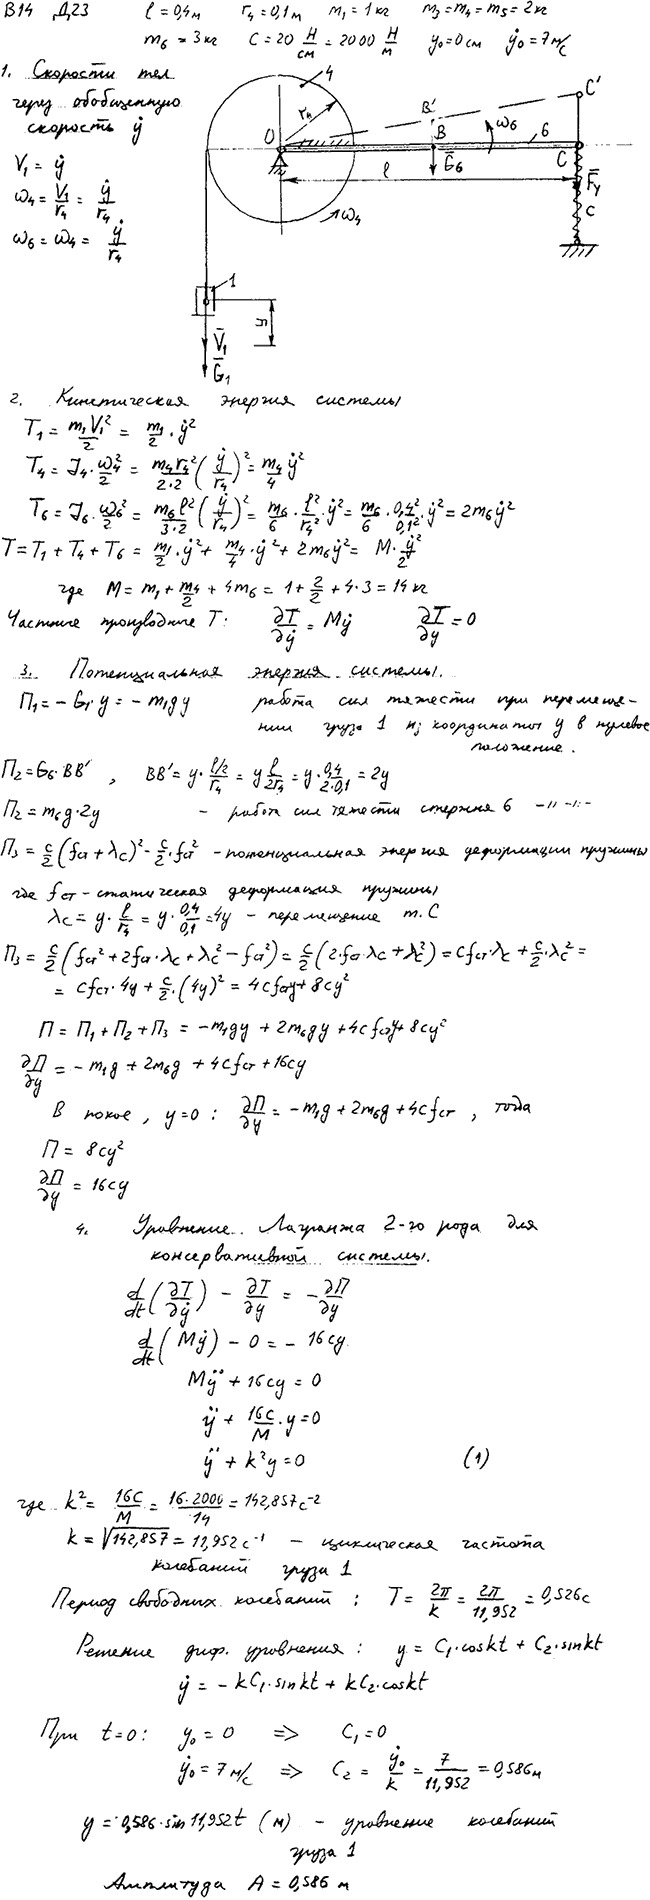 В14 Д23 l = 0,4 м r₄ = 0,1 м m₁ = 1 кг m₃ = m₄ = m₅ = 2 кг
m₆ = 3 кг C = 20 Н/см = 2000 Н/м y₀ = 0 см ẏ₀ = 7 м/с
1. Скорости тел
через обобщенную
скорость ẏ
V₁ = ẏ
ω₄ = V₁/r₄ = ẏ/r₄
ω₆ = ω₄ = ẏ/r₄
4
r₄
O
B'
B
ω₆
6
C'
C
G̅₆
l
F̅y
c
ω₄
1
h
V̅₁
G̅₁
2. Кинетическая энергия системы
T₁ = m₁V₁²/2 = m₁/2 · ẏ²
T₄ = J₄ · ω₄²/2 = m₄r₄²/2·2 (ẏ/r₄)² = m₄/4 ẏ²
T₆ = J₆ · ω₆²/2 = m₆l²/3·2 (ẏ/r₄)² = m₆/6 · l²/r₄² · ẏ² = m₆/6 · 0,4²/0,1² · ẏ² = 2m₆ẏ²
T = T₁ + T₄ + T₆ = m₁/2 · ẏ² + m₄/4 · ẏ² + 2m₆ẏ² = M · ẏ²/2
где M = m₁ + m₄/2 + 4m₆ = 1 + 2/2 + 4·3 = 14 кг
Частные производные T: ∂T/∂ẏ = Mẏ ∂T/∂y = 0
3. Потенциальная энергия системы.
П₁ = − G₁ · y = − m₁gy работа сил тяжести при перемеще-
нии груза 1 из координаты y в нулевое
положение.
П₂ = G₆ · BB' , BB' = y · l/2/r₄ = y l/2r₄ = y · 0,4/2·0,1 = 2y
П₂ = m₆g · 2y – работа сил тяжести стержня 6 -"-"-
П₃ = c/2 (fст + λc)² − c/2 · fст² - потенциальная энергия деформации пружины
где fст - статическая деформация пружины
λc = y · l/r₄ = y · 0,4/0,1 = 4y – перемещение т. C
П₃ = c/2 (fст² + 2fст · λc + λc² − fст²) = c/2 (2·fст λc + λc²) = cfст · λc + c/2 · λc² =
= cfст · 4y + c/2 · (4y)² = 4cfстy + 8cy²
П = П₁ + П₂ + П₃ = − m₁gy + 2m₆gy + 4cfстy + 8cy²
∂П/∂y = − m₁g + 2m₆g + 4cfст + 16cy
В покое, y = 0 : ∂П/∂y = − m₁g + 2m₆g + 4cfст , тогда
П = 8cy²
∂П/∂y = 16cy
4. Уравнение Лагранжа 2-го рода для
консервативной системы.
d/dt (∂T/∂ẏ) − ∂T/∂y = − ∂П/∂y
d/dt (Mẏ) − 0 = − 16cy
Mÿ + 16cy = 0
ÿ + 16c/M · y = 0
ÿ + k²y = 0 (1)
где k² = 16C/M = 16·2000/14 = 142,857 с⁻²
k = √142,857 = 11,952 с⁻¹ – циклическая частота
колебаний груза 1
Период свободных колебаний : T = 2π/k = 2π/11,952 = 0,526 с
Решение диф. уровнения : y = C₁·coskt + C₂·sinkt
ẏ = − kC₁·sinkt + kC₂·coskt
При t = 0 : y₀ = 0 => C₁ = 0
ẏ₀ = 7 м/с => C₂ = ẏ₀/k = 7/11,952 = 0,586 м
y = 0,586 · sin 11,952t (м) – уровнение колебаний
груза 1
Амплитуда A = 0,586 м